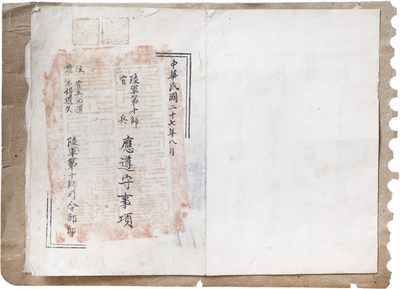 中華民國二十七年八月
陸軍第十師
官兵
應遵守事項
注意
官兵必讀
不得遺失
陸軍第十師司令部印